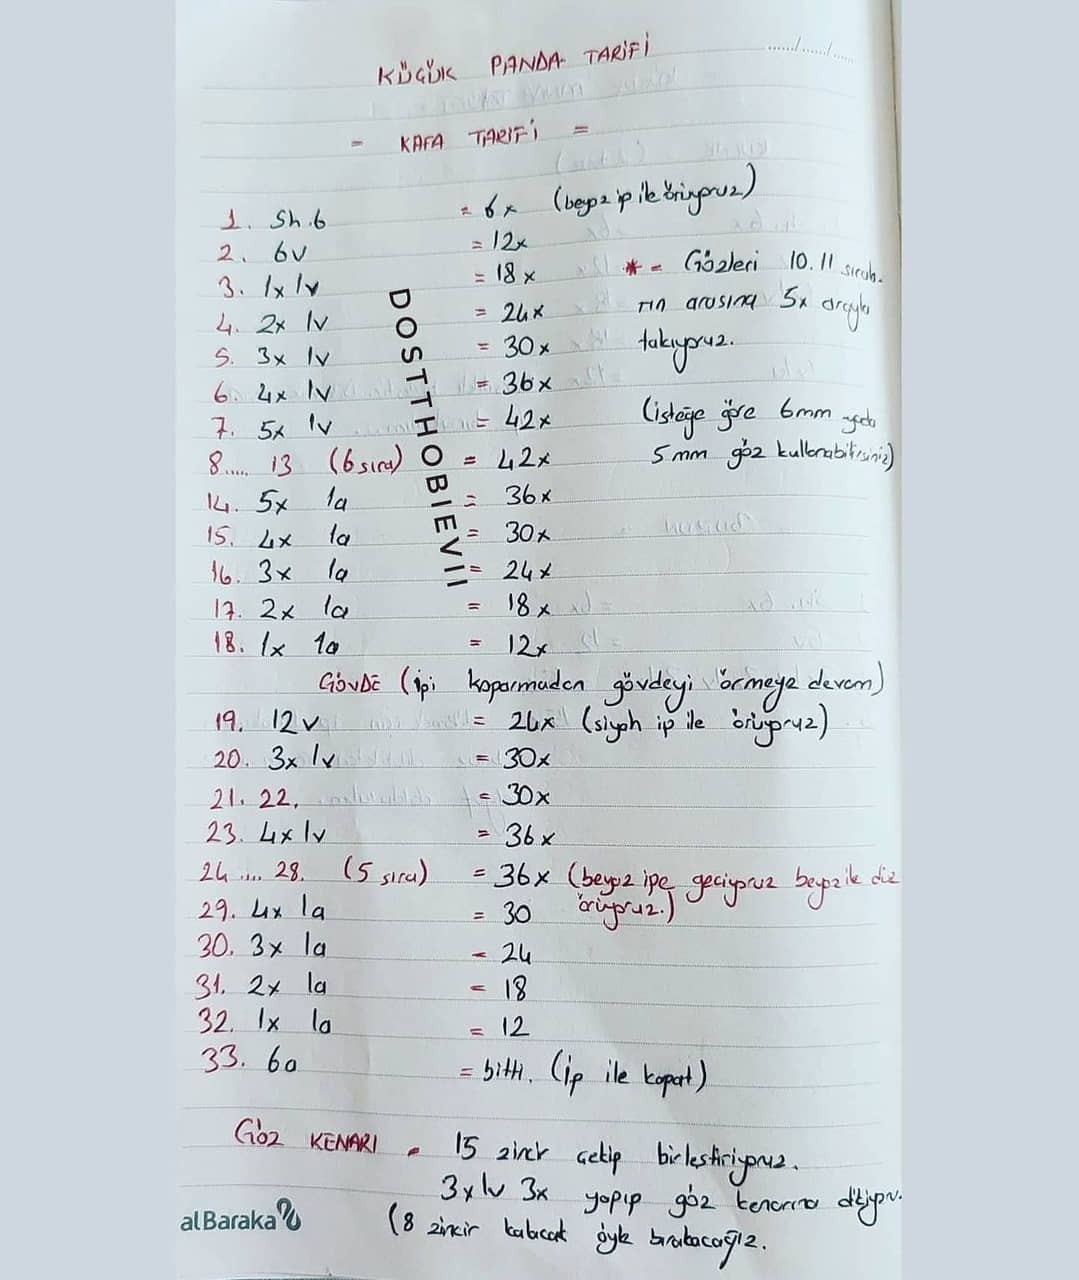 KÜÇÜK PANDA TARİFİ
...../...../.....
= KAFA TARİFİ =
1. Sh.6 = 6x (beyaz ip ile örüyoruz)
2. 6v = 12x
3. 1x 1v = 18x
* = Gözleri 10.11 sırala.
4. 2x 1v = 24x
rın arasına 5x arayla
5. 3x 1v = 30x
takıyoruz.
6. 4x 1v = 36x
7. 5x 1v = 42x
(isteğe göre 6mm yada
8..... 13 (6 sıra) = 42x
5mm göz kullanabilirsiniz)
14. 5x 1a = 36x
15. 4x 1a = 30x
16. 3x 1a = 24x
17. 2x 1a = 18x
18. 1x 1a = 12x
DOSTTHOBIEVII
GÖVDE (ipi koparmadan gövdeyi örmeye devam)
19. 12v = 24x (siyah ip ile örüyoruz)
20. 3x 1v = 30x
21. 22. = 30x
23. 4x 1v = 36x
24 .... 28. (5 sıra) = 36x (beyaz ipe geciyoruz beyaz ile diz
örüyoruz.)
29. 4x 1a = 30
30. 3x 1a = 24
31. 2x 1a = 18
32. 1x 1a = 12
33. 6a = bitti. (ip ile kapat)
GÖZ KENARI = 15 zincir çekip birleştiriyoruz.
3x1v 3x yapıp göz kenarına dikiyoru.
(8 zincir kalacak öyle bırakacağız.
alBaraka